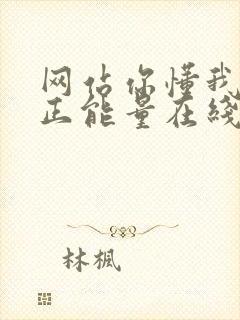 网站你懂我
正能量在线
林枫